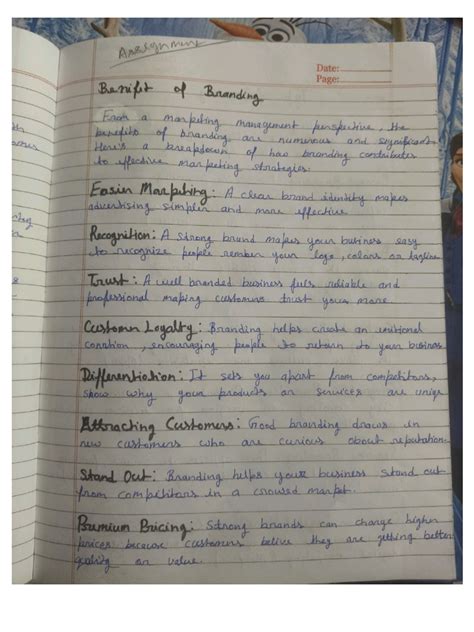 Assignment
Date:
Page:
Benifit of Branding
From a marketing management perspective, the
benefits of branding are numerous and significant
Here's a breakdown of how branding contributes
to effective marketing strategies.
Easier Marketing: A clear brand identity makes
advertising simpler and more effective
Recognition: A strong brand makes your business easy
to recognize people remben your logo, colors or tagline
Trust: A well branded business fells reliable and
professional making customers trust your more
Customer Loyalty: Branding helps create an emitional
conntion, encouraging people to return to your business
Differentiation: It sets you apart from competitors,
show why your products or services are uniqe
Attracting Customers: Good branding draws in
new customers who are curious about reputation.
Stand Out: Branding helps your business stand out
from compititors in a croused market.
Premium Pricing: Strong brands can charge higher
prices because customers belive they are getting better
quality or value.